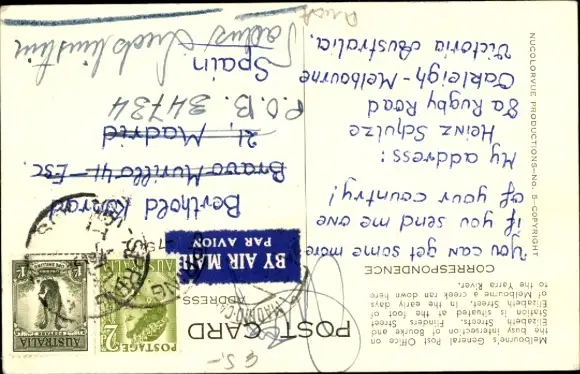 Melbourne's General Post Office on
the busy intersection of Bourke and
Elizabeth Streets. Flinders Street
Station is situated at the foot of
Elizabeth Street. In the early days
of Melbourne a creek ran down here
to the Yarra River.
POST CARD
CORRESPONDENCE
ADDRESS
You can get some more
if you send me one
of your country!
My address:
Heinz Schulze
8a Rugby Road
Oakleigh - Melbourne
Victoria Australia.
NUCOLORVUE PRODUCTIONS—No. 5—COPYRIGHT
POSTAGE
2
AUSTRALIA
AUSTRALIA
BY AIR MAIL
PAR AVION
Berthold Konrad
Bravo Murillo 41 - Esc.
21, Madrid
P.O.B. 34734
Spain